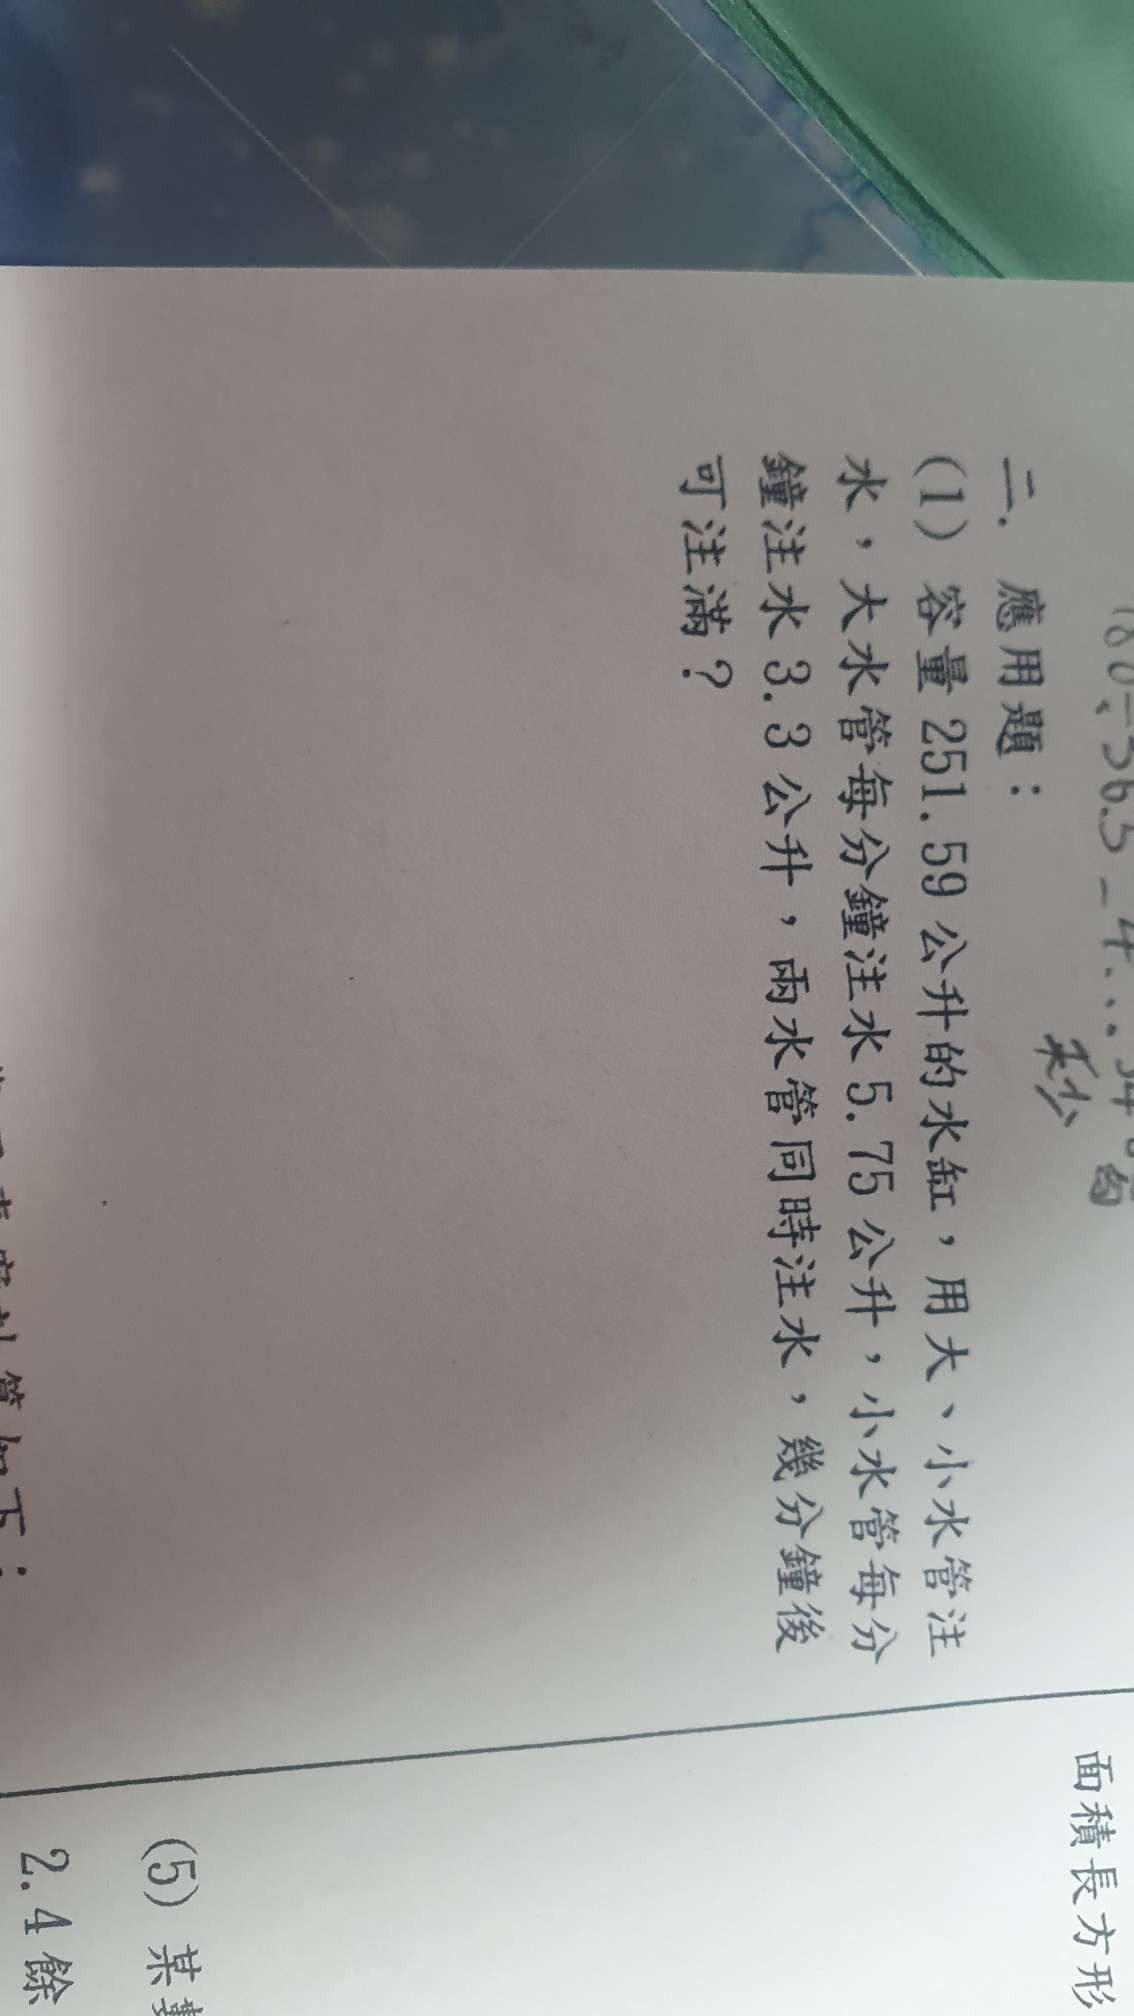 二. 應用題：
(1) 容量 251.59 公升的水缸，用大、小水管注
水，大水管每分鐘注水 5.75 公升，小水管每分
鐘注水 3.3 公升，兩水管同時注水，幾分鐘後
可注滿？
秒
面積長方形
(5) 某
2.4 餘
如下：